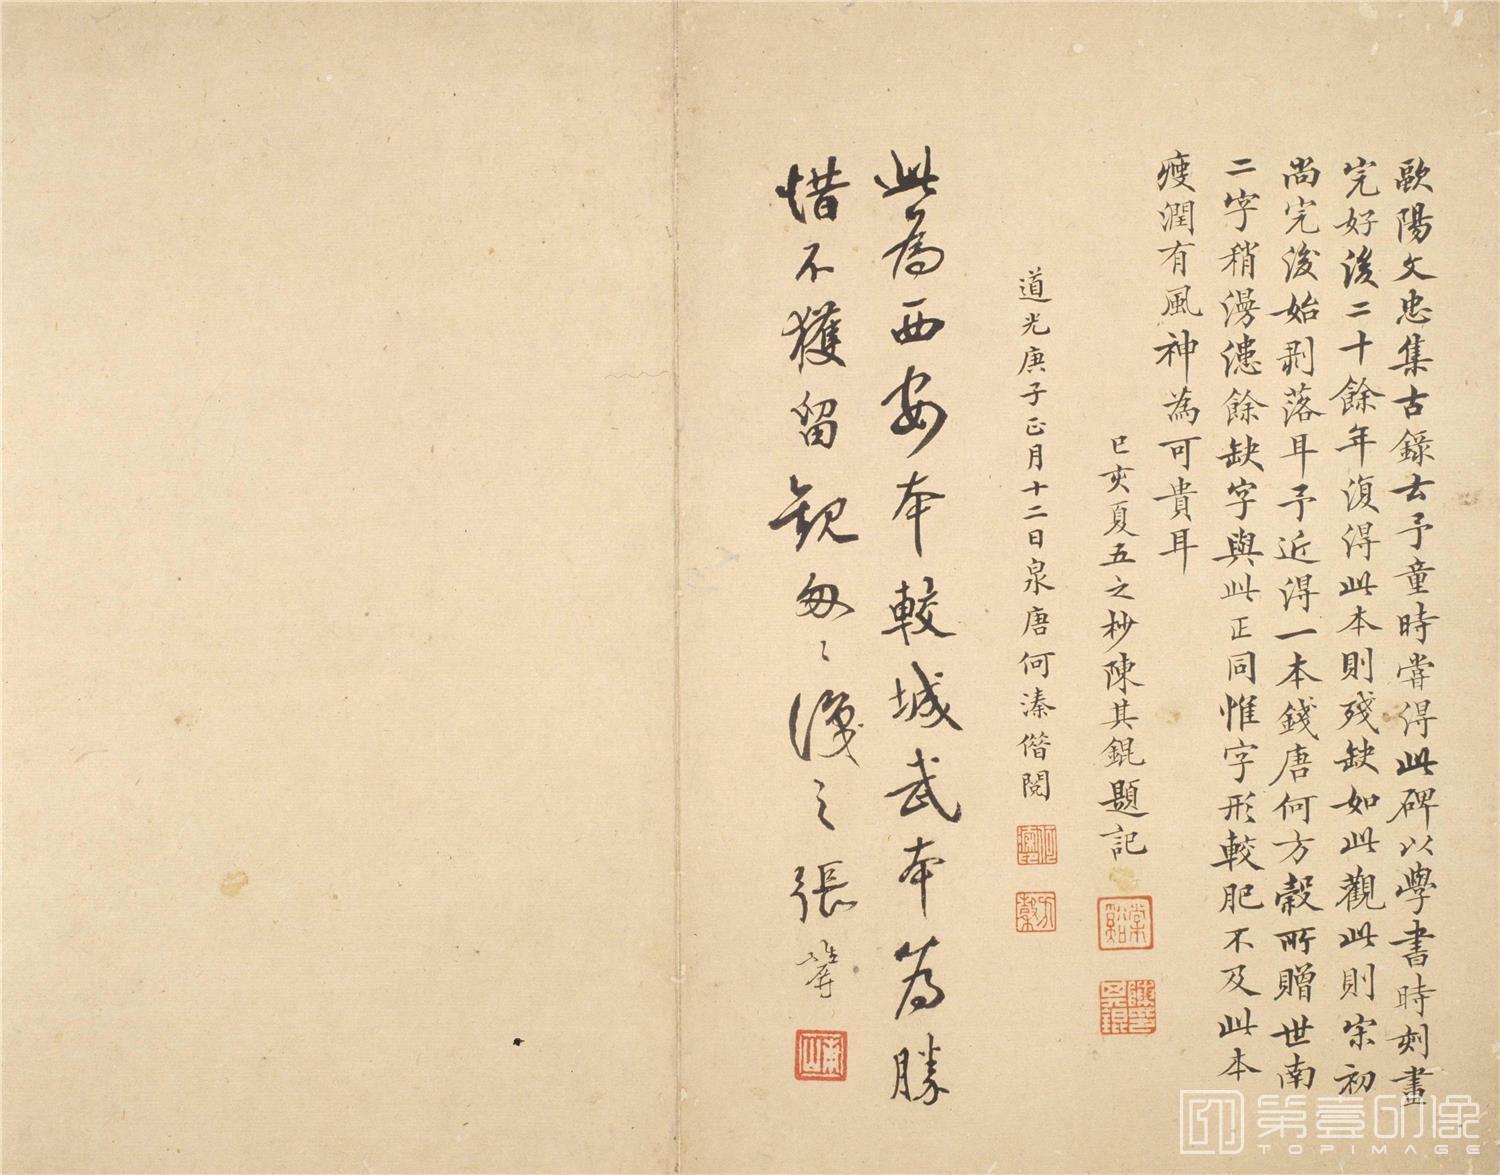 歐陽文忠集古錄云予童時嘗得此碑以學書時刻畫
完好後二十餘年復得此本則殘缺如此觀此則宋初
尚完後始剥落耳予近得一本錢唐何方穀所贈世南
二字稍漫漶餘缺字與此正同惟字形較肥不及此本
瘦潤有風神為可貴耳
已亥夏五之杪陳其錕題記
棠谿
陳其錕
道光庚子正月十二日泉唐何溱借閱
何溱
方穀
此為西安本較城武本為勝
惜不獲留觀匆〻還之張
南山
第壹印像
TOPIMAGE